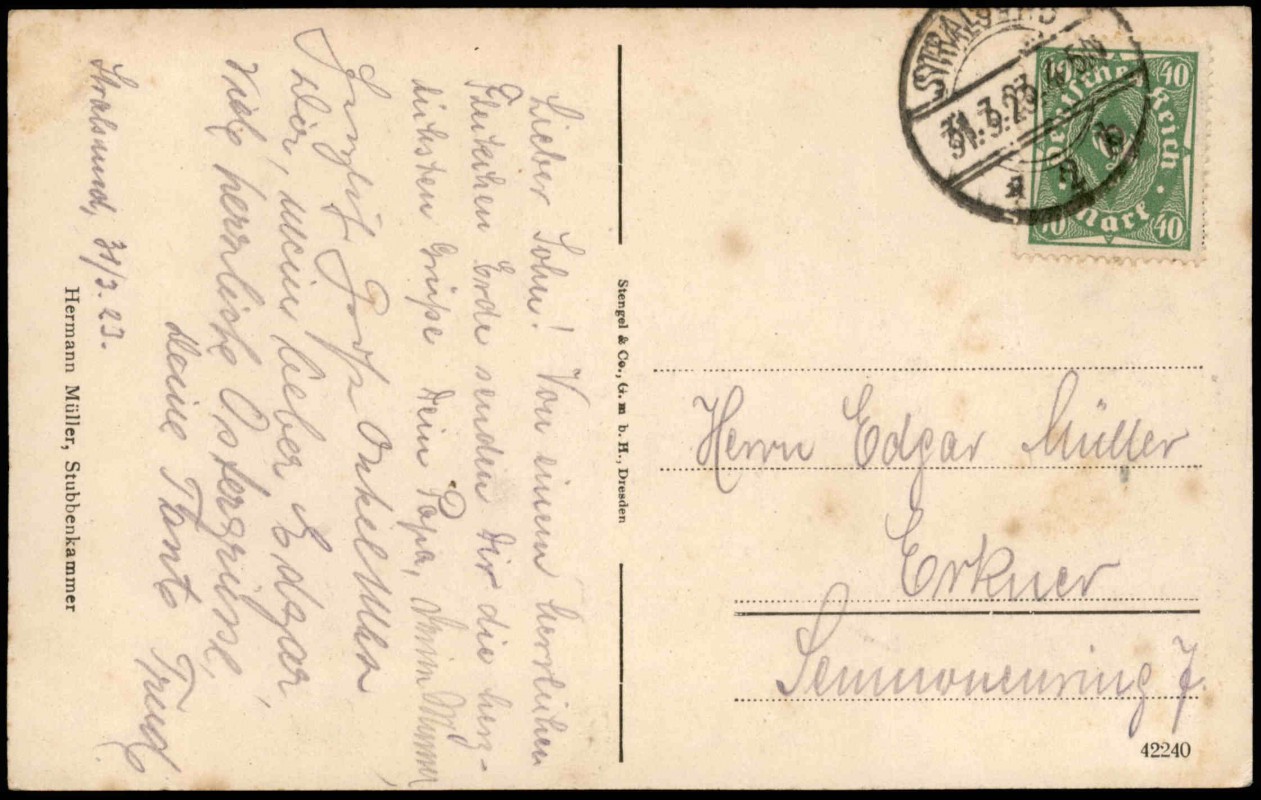 Stralsund, 31/3. 23.
Lieber Sohn! Von einem herrlichen
Fleckchen Erde senden Dir die herz-
lichsten Grüße Dein Papa,
Onkel Max
Dir, mein lieber Edgar,
Viele herrliche Ostergrüße,
Deine Tante Trude
Hermann Müller, Stubbenkammer
Stengel & Co., G. m b. H., Dresden
STRALSUND
31.3.23.
Deutsches Reich
40 40
40 40
Mark
Herrn Edgar Müller
Erkner
Semnonenring 7
42240